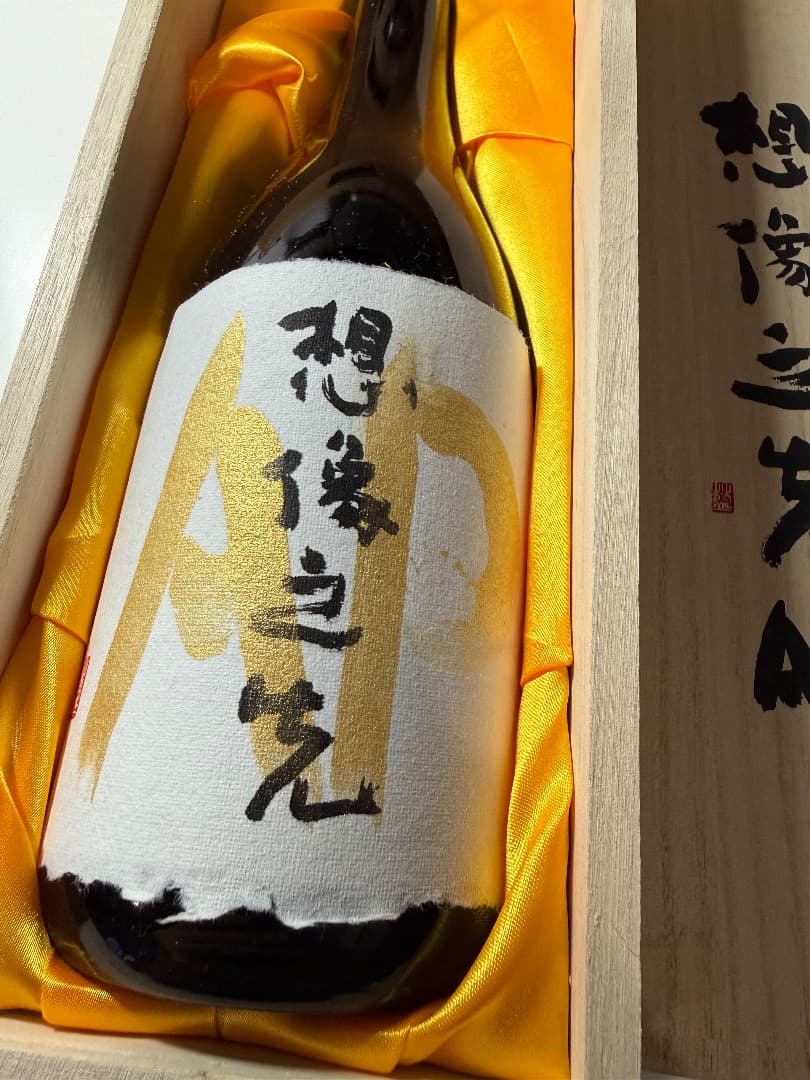 想像之先
AP
想像之先